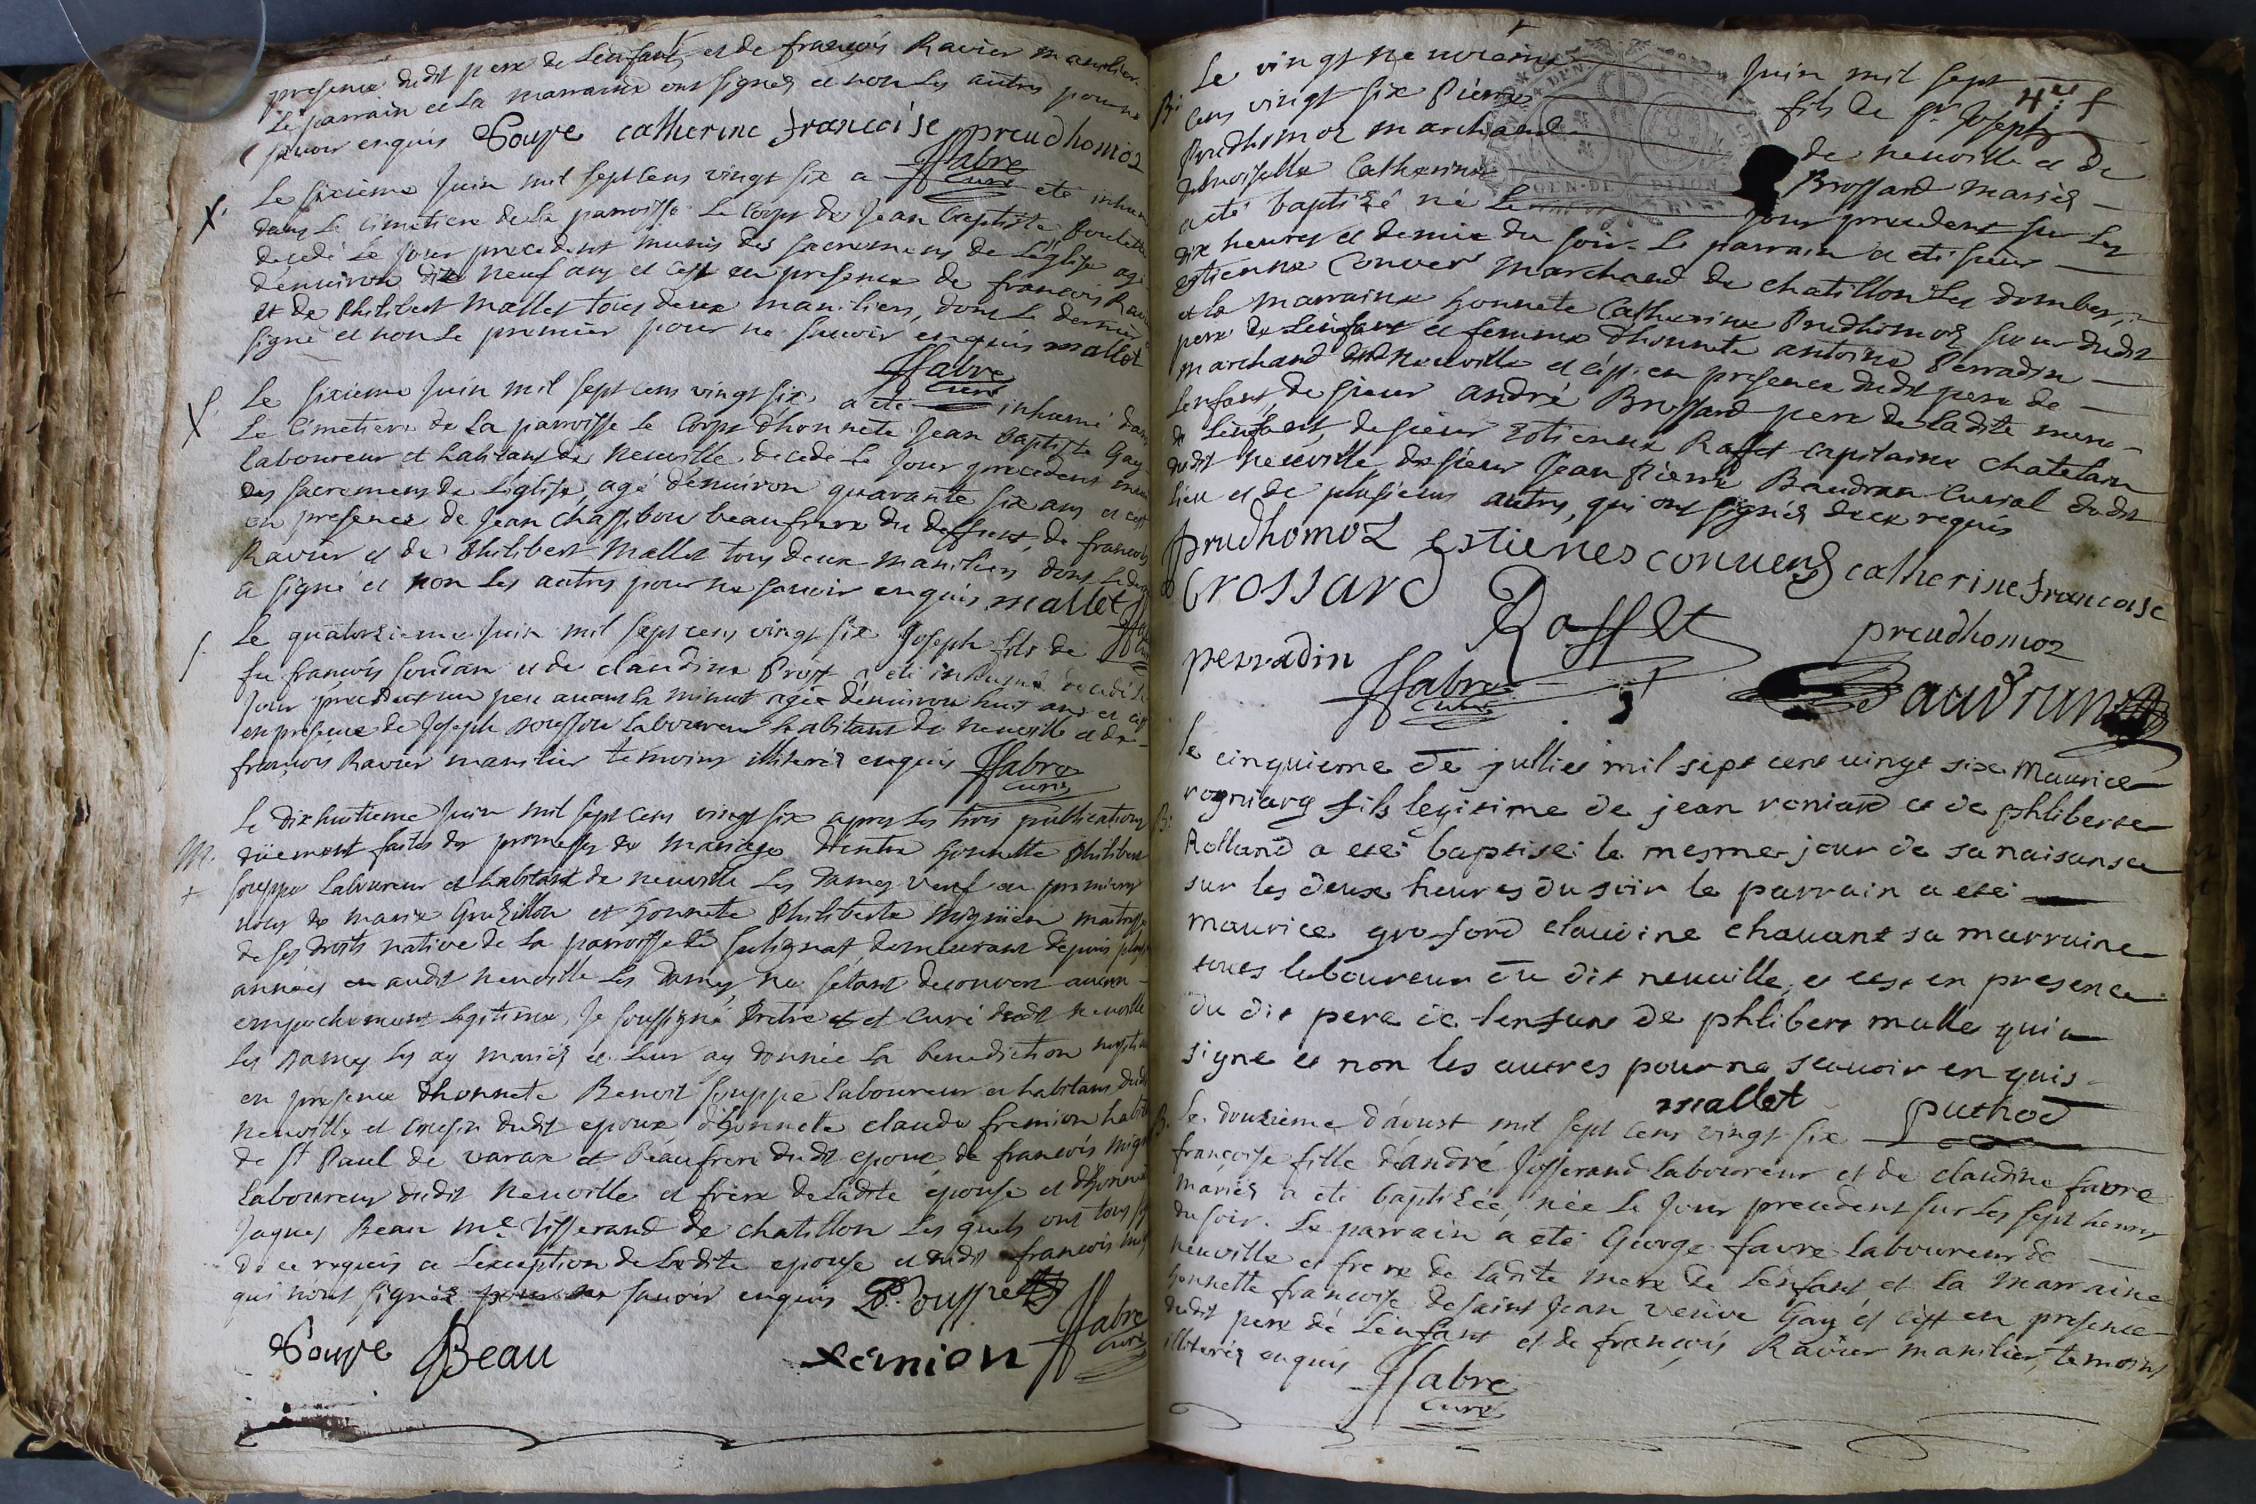 presence dudit pere de Lenfant, et de françois Ravier manilier
Le parrain et La marraine ont signés et non Les autres pour ne
savoir enquis Soupe catherine françoise preudhomoz
ffabre curé
Le sixieme Juin mil sept cens vingt six a eté inhumé
dans Le Cimetiere de La parroisse Le Corps de Jean Baptiste
decedé Le Jour precedent munis des sacremens de Leglise agé
denuiron dix neuf ans et c'est en presence de francois Ravier
et de Philibert Mallet tous deux maniliers, dont Le dernier
signé et non Le premier pour ne savoir enquis mallet
ffabre curé
Le sixieme Juin mil sept cens vingt six a eté inhumé dans
Le Cimetiere de La parroisse Le Corps d'honnete Jean Baptiste Gay
laboureur et habitant de neuville decede Le Jour precedent muni
des sacremens de Leglise, agé denuiron quarante six ans et c'est
en presence de Jean Chassibou beaufrere du deffunt, de francois
Ravier et de Philibert Mallet tous deux maniliers dont Le dernier
a signé et non Les autres pour ne savoir enquis mallet
S. Le quatorzieme Juin mil sept cens vingt six Joseph fils de
fu françois et de claudine Prost a eté inhumé decedé Le
Jour precedent un peu avant La minuit agée denuiron huit ans et c'est
en presence de Joseph Laboureur habitant de neuville et de
françois Ravier manilier temoins illiterés enquis ffabre curé
M. Le dixhuitieme Juin mil sept cens vingt six apres Les trois publications
düement faites des promesses de mariage d'entre honnette Philibert
souppe Laboureur et habitant de neuville Les dames veuf en premieres
noces de marie et honnete Philiberte mignien maitresse
de ses droits native de La parroisse de demeurant depuis plusieurs
années en audit neuville Les dames, ne setant decouvert aucun
empechement legitime, Je soussigné Pretre et Curé dudit neuville
Les dames Les ay mariés et Leur ay donnée La benediction nuptiale
en presence d'honnete Benoit souppe laboureur et habitant dudit
neuville et cousin dudit epoux d'honnete claude fremion habitant
de St Paul de varax et beaufrere dudit epoux de francois mignien
Laboureur dudit neuville et frere de Ladite épouse et d'honnete
Jaques Beau Me Tisserand de chatillon Les quels ont tous signé
de ce requis a Lexception de Ladite epouse et dudit francois mignien
qui n'ont signés pour ne savoir enquis P. Souppe
Soupe Beau fremion ffabre curé
4e f
B. Le vingt neuvieme Juin mil sept
cens vingt six Pierre fils de Sr Joseph
Prudhomoz marchand de neuville et de
demoiselle Catherine Brossard mariés
a eté baptizé né Le Jour precedent sur Les
dix heures et demie du soir. Le parrain a eté sieur
estienne Conver marchand de chatillon Les dombes,
et la marraine honnete Catherine Prudhomoz soeur dudit
pere de Lenfant et femme d'honnete antoine Perradin
marchand dudit neuville et c'est en presence dudit pere de
Lenfant, de sieur andré Brossard pere de Ladite mere
de Lenfant, de sieur Estienne Raffet capitaine chatelain
dudit neuville, de sieur Jean Pierre Baudrun Curial dudit
lieu et de plusieurs autres, qui ont signés de ce requis
prudhomoz estienes convers catherine françoise
brossard Raffet preudhomoz
perradin ffabre curé Baudrun
B. le cinquieme de jullies mil sept cent vingt six Maurice
rogniard fils legitime de jean roniard et de phliberte
Rolland a eteé baptiseé le mesme jour de sa naisansce
sur les deux heures du soir le parrain a eteé
maurice grosford claudine chavant sa marraine
toutes laboureur du dit neuville, et cest en presence
du dit pere de lenfant de phlibert malle qui a
signe et non les autres pour ne scavoir enquis
mallet puthod
B. Le douzieme d'aoust mil sept cens vingt six
françoise fille d'andré Josserand laboureur et de claudine favre
mariés a eté baptizée, née Le Jour precedent sur Les sept heures
du soir. Le parrain a eté George favre laboureur de
neuville et frere de ladite mere de Lenfant, et La marraine
honnette francoise de saint Jean veuve Gay et c'est en presence
dudit pere de Lenfant et de françois Ravier manilier, temoins
illiterés enquis ffabre curé